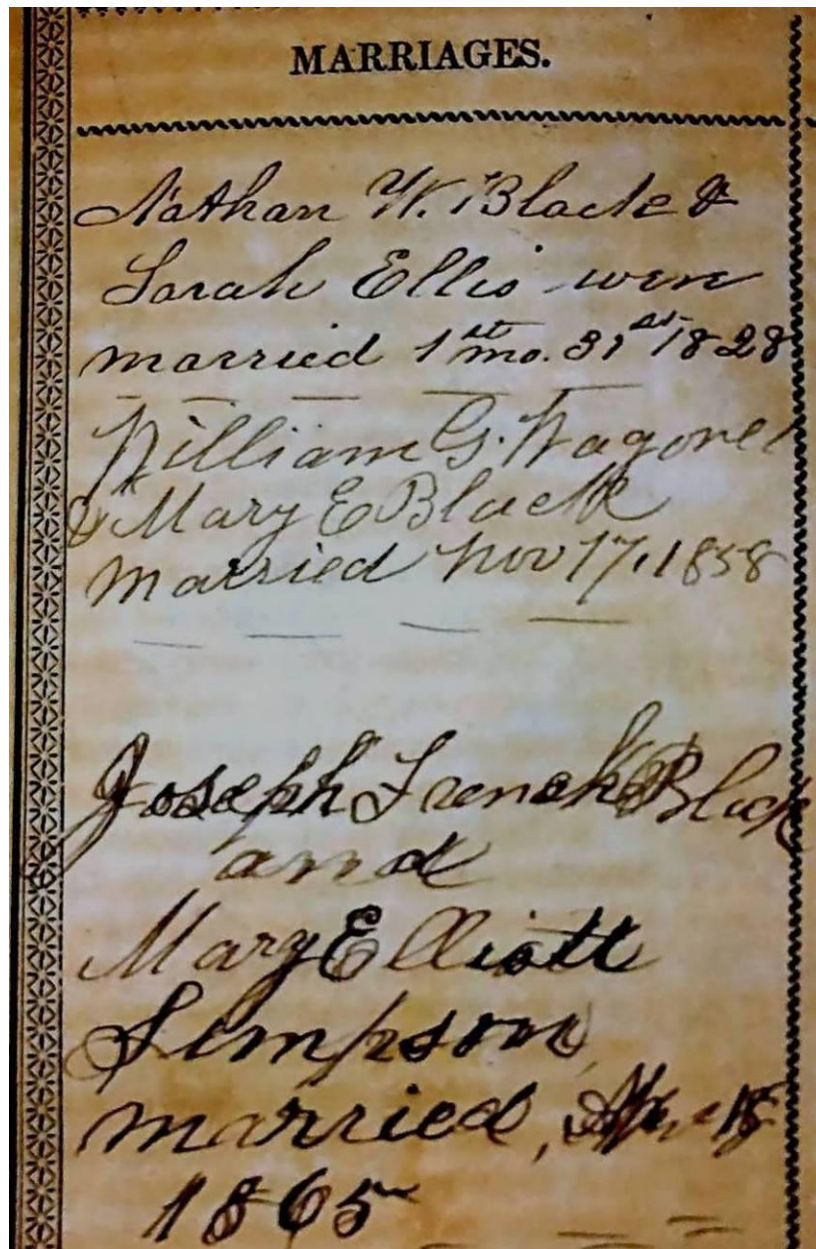 MARRIAGES.
Nathan W. Black &
Sarah Ellis were
married 1st mo. 31st 1828
William G. Wagoner
& Mary E Black
married Nov 17, 1858
Joseph French Black
and
Mary Elliott
Simpson
married, Ap. 18
1865